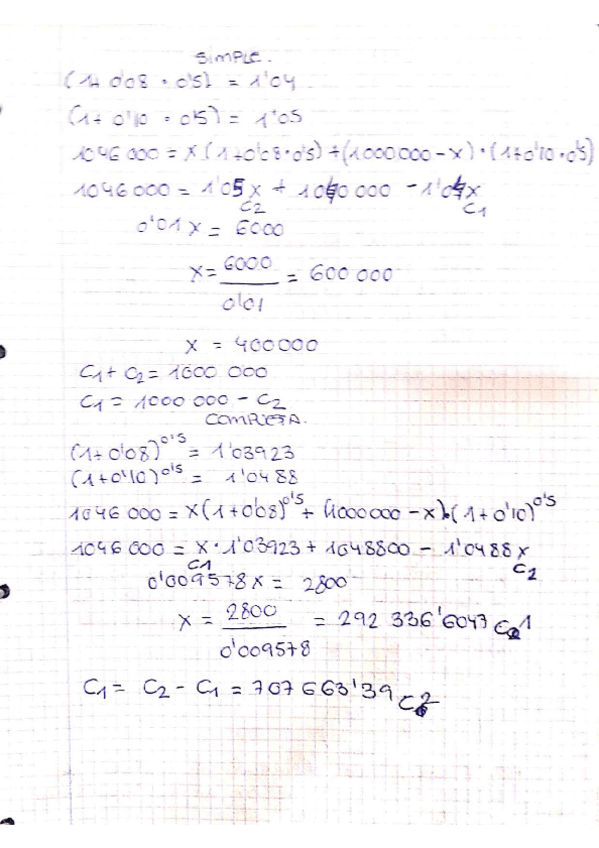 SIMPLE.
(1+ 0'08 · 0'5) = 1'04
(1+ 0'10 · 0'5) = 1'05
1046 000 = x (1+0'08·0'5) + (1000000 - x) · (1+0'10·0'5)
1046 000 = 1'05x + 1040 000 - 1'04x
C2 C1
0'01 x = 6000
x = 6000 / 0'01 = 600 000
x = 400000
C1 + C2 = 1000 000
C1 = 1000 000 - C2
COMPUESTA.
(1+ 0'08)^0'5 = 1'03923
(1+ 0'10)^0'5 = 1'0488
1046 000 = x(1+0'08)^0'5 + (1000000 - x) · (1+0'10)^0'5
1046 000 = x · 1'03923 + 1048800 - 1'0488 x
C1 C2
0'009578 x = 2800
x = 2800 / 0'009578 = 292 336'6047 C1
C1 = C2 - C1 = 707 663'39 C2